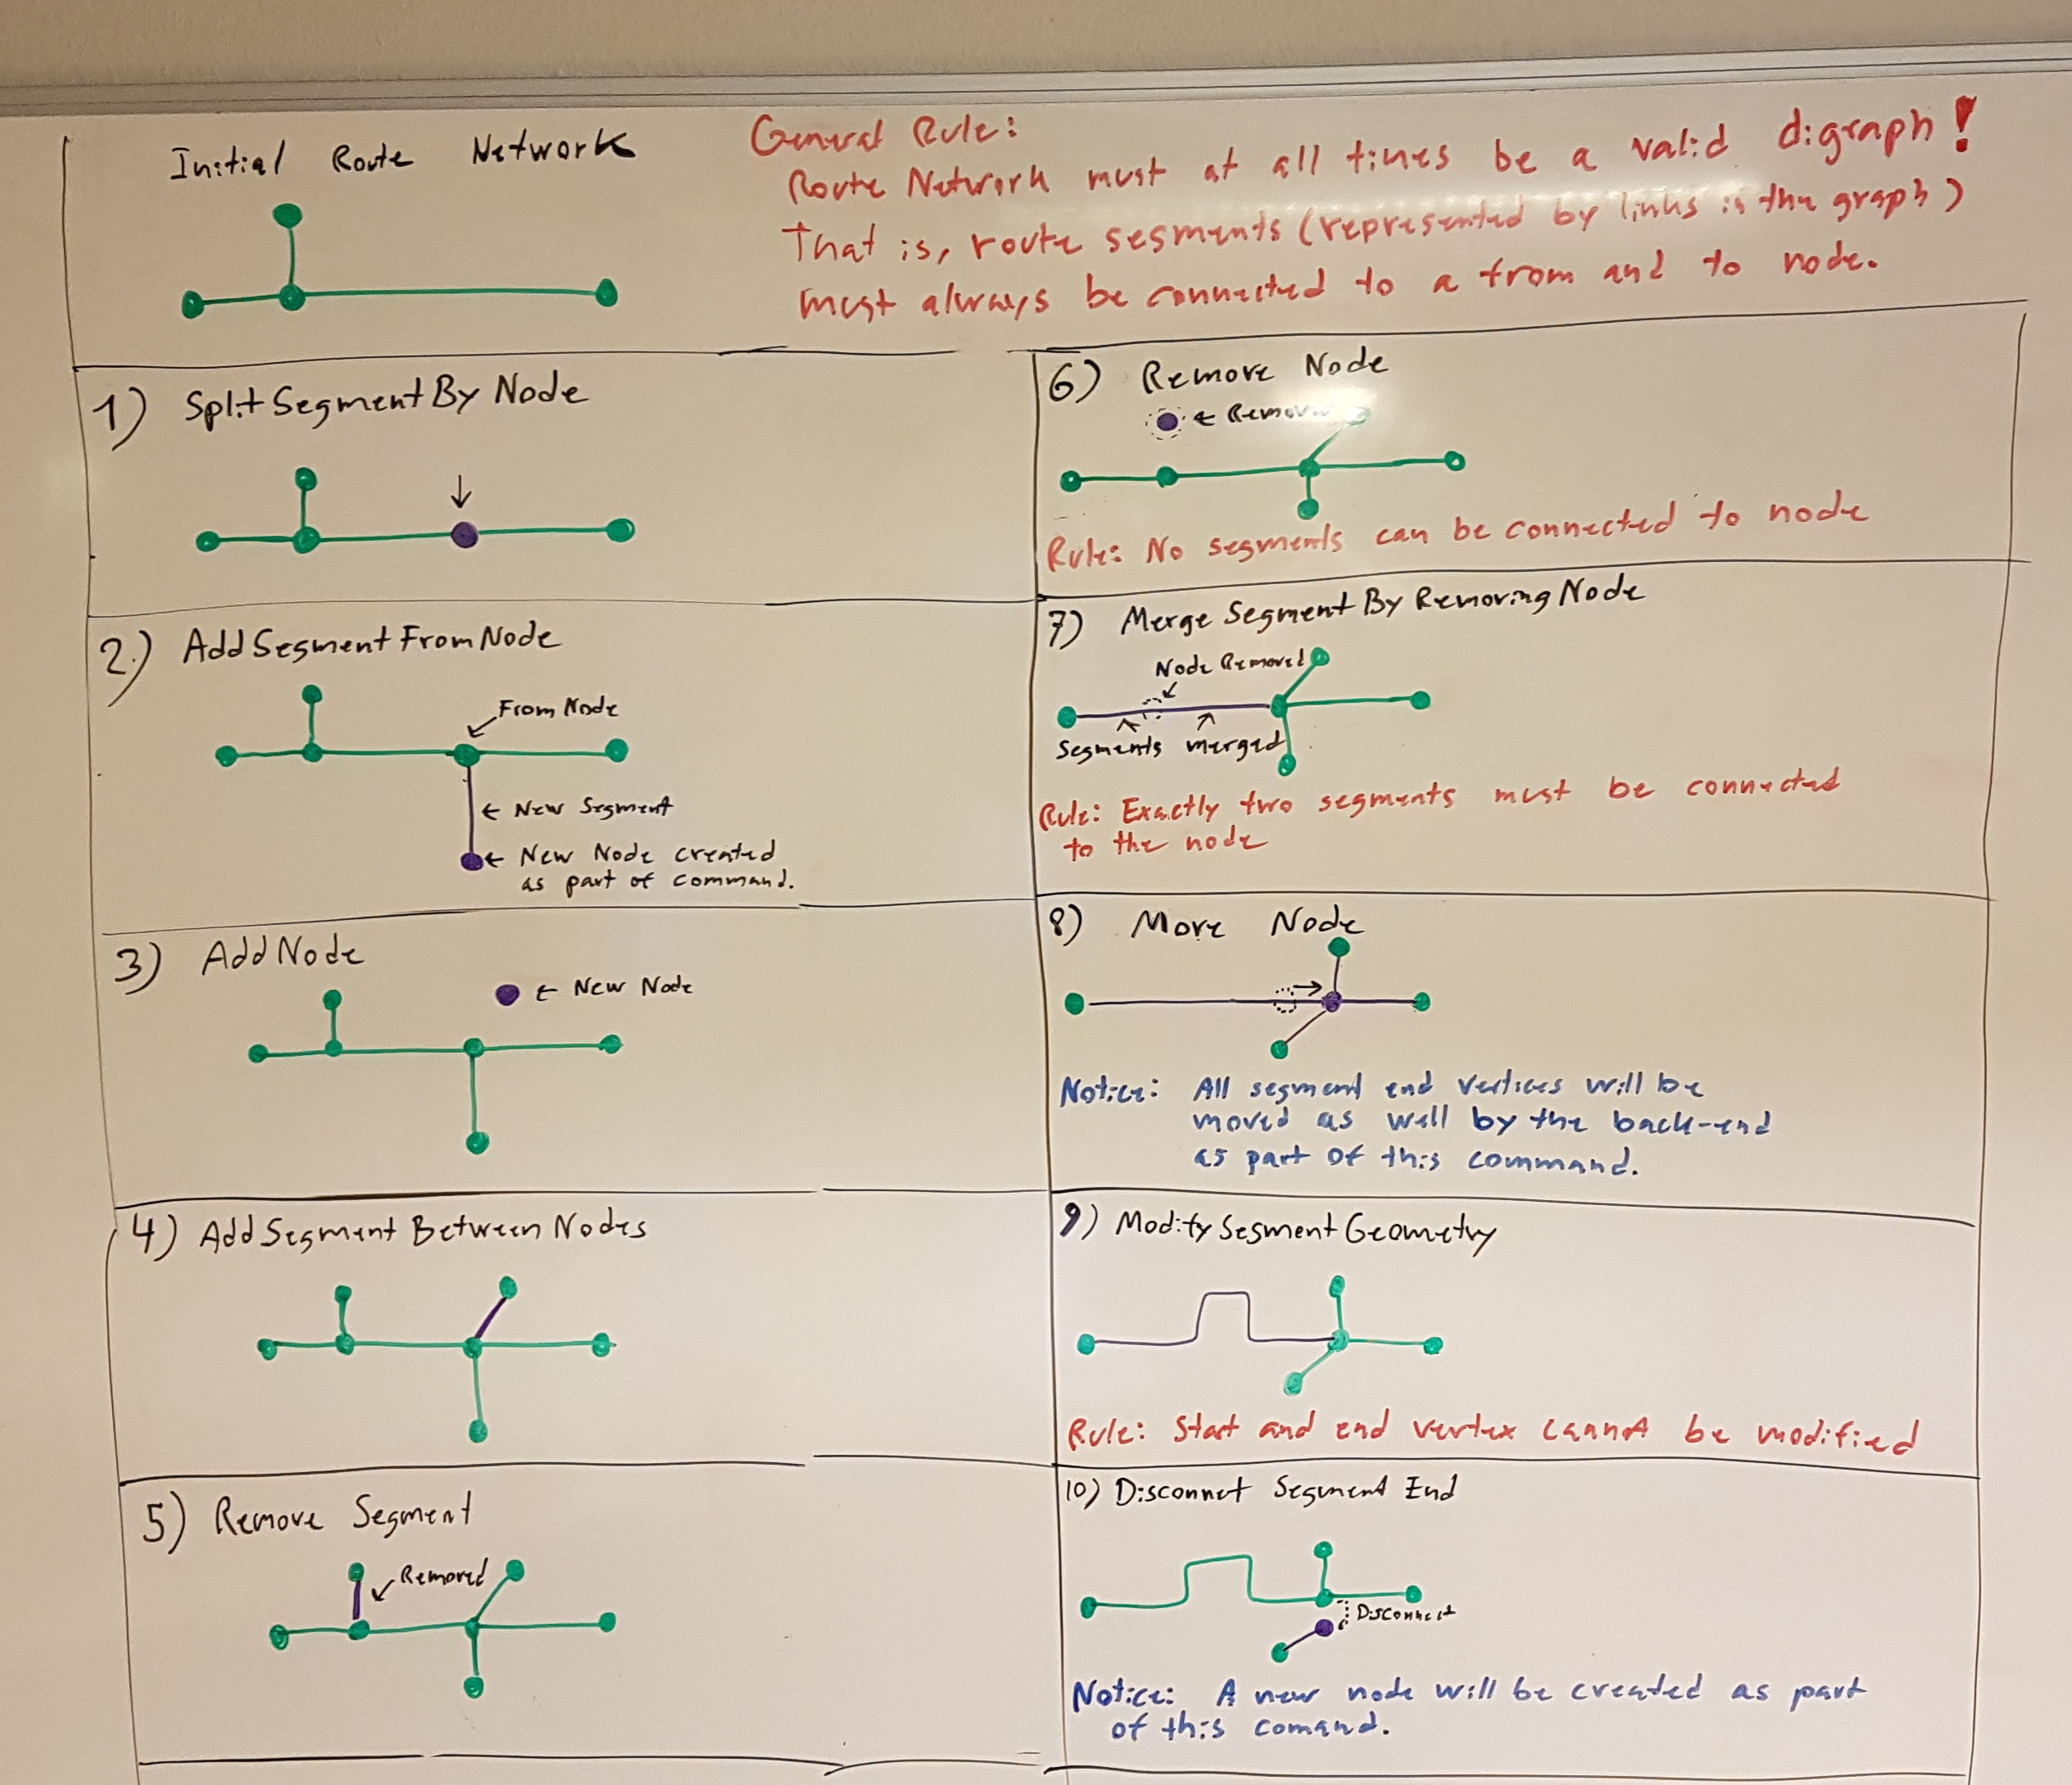 Initial Route Network
General Rule:
Route Network must at all times be a valid digraph!
That is, route segments (represented by links in the graph)
must always be connected to a from and to node.
1) Split Segment By Node
2.) Add Segment From Node
From Node
← New Segment
← New Node created
as part of command.
3) Add Node
← New Node
4) Add Segment Between Nodes
5) Remove Segment
Removed
6) Remove Node
← Remov
Rule: No segments can be connected to node
7) Merge Segment By Removing Node
Node Removed
Segments merged
Rule: Exactly two segments must be connected
to the node
8) Move Node
Notice: All segment end vertices will be
moved as well by the back-end
as part of this command.
9) Modify Segment Geometry
Rule: Start and end vertex cannot be modified
10) Disconnet Segment End
Disconnect
Notice: A new node will be created as part
of this comand.